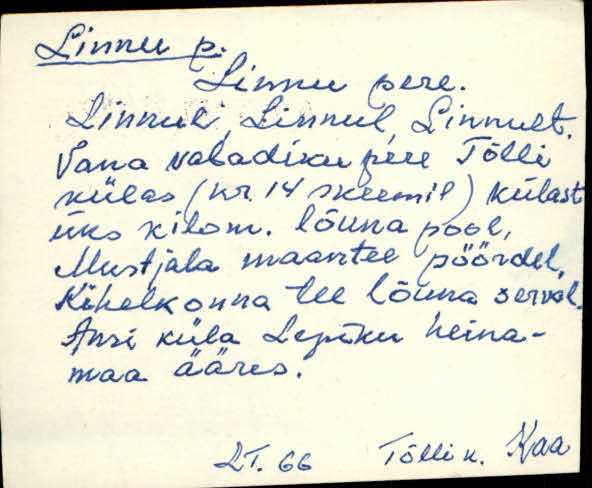 Linnu p.
Linnu pere.
Linnule, Linnul, Linnult.
Vana vabadiku pere Tõlli
külas (nr. 14 skeemil) külast
üks kilom. lõuna pool,
Mustjala maantee pöördel,
Kihelkonna tee lõuna serval.
Ansi küla Lepiku heina-
maa ääres.
LT. 66 Tõlli k. Kaa